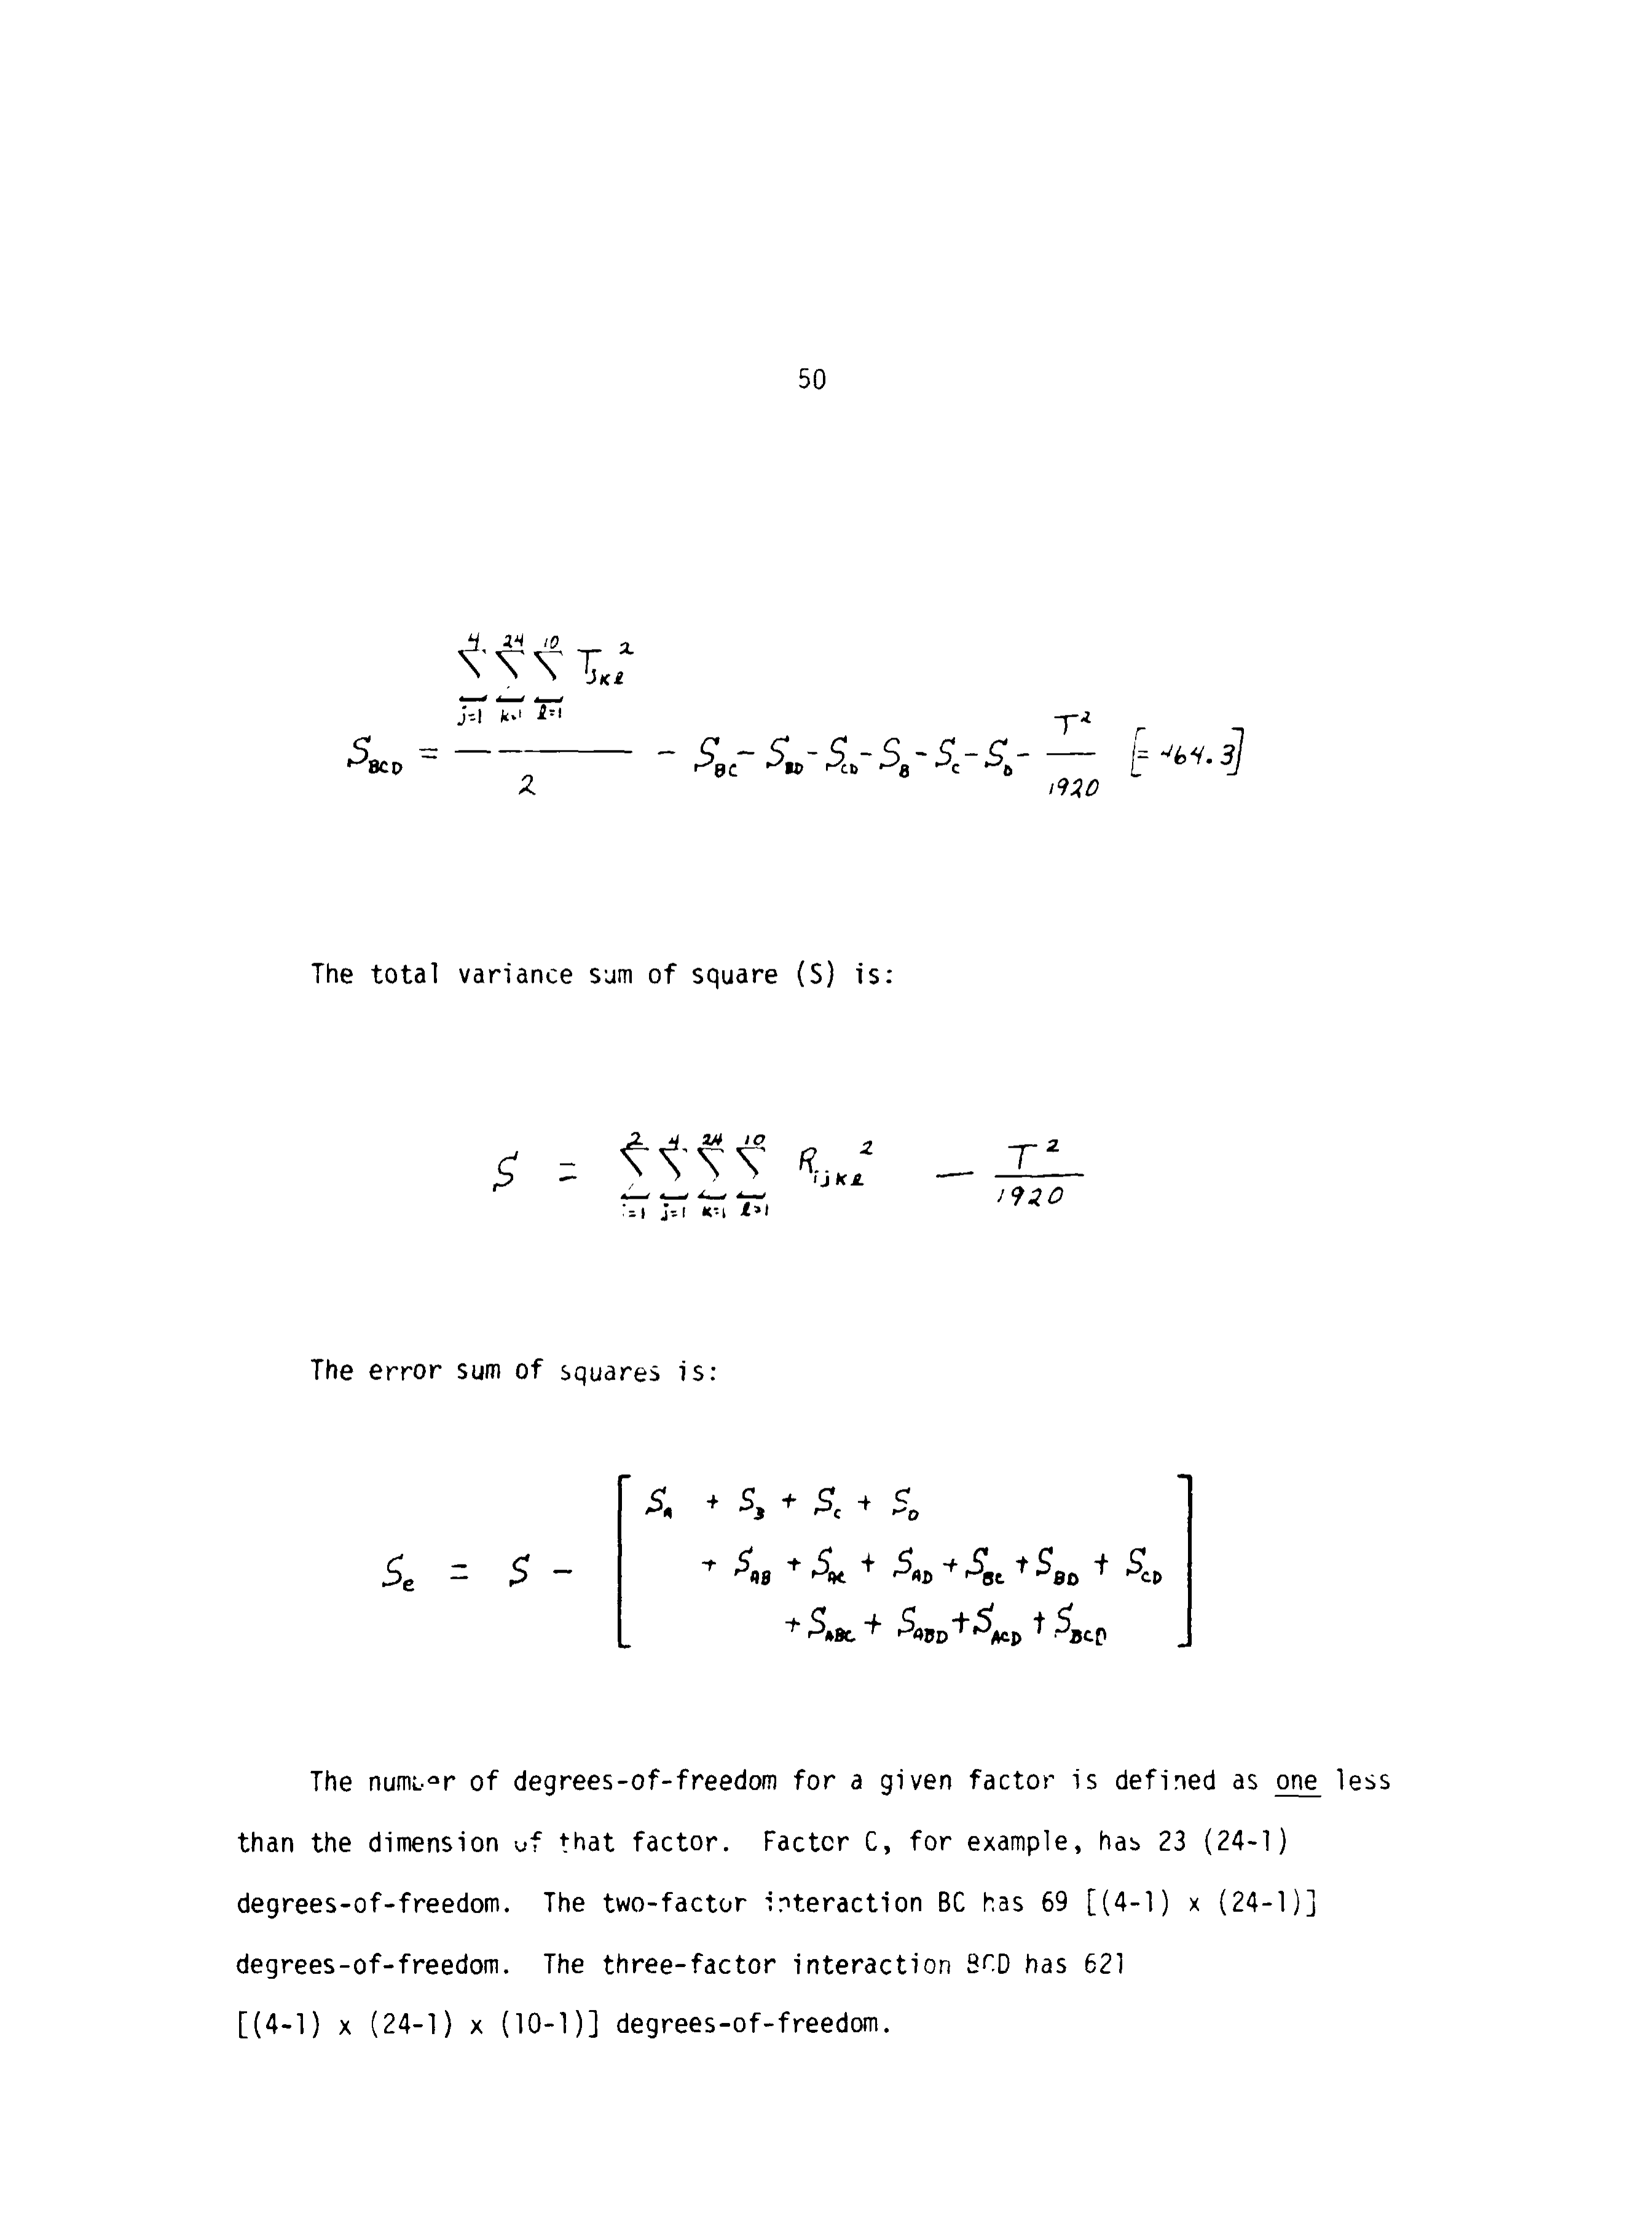 50
S_BCD = (∑_{j=1}^{4} ∑_{k=1}^{24} ∑_{ℓ=1}^{10} T_jkℓ^2) / 2 - S_BC - S_BD - S_CD - S_B - S_C - S_D - T^2 / 1920 [= 464.3]
The total variance sum of square (S) is:
S = ∑_{i=1}^{2} ∑_{j=1}^{4} ∑_{k=1}^{24} ∑_{ℓ=1}^{10} R_ijkℓ^2 - T^2 / 1920
The error sum of squares is:
S_e = S - [ S_A + S_B + S_C + S_D
+ S_AB + S_AC + S_AD + S_BC + S_BD + S_CD
+ S_ABC + S_ABD + S_ACD + S_BCD ]
The number of degrees-of-freedom for a given factor is defined as one less
than the dimension of that factor. Factor C, for example, has 23 (24-1)
degrees-of-freedom. The two-factor interaction BC has 69 [(4-1) x (24-1)]
degrees-of-freedom. The three-factor interaction BCD has 621
[(4-1) x (24-1) x (10-1)] degrees-of-freedom.